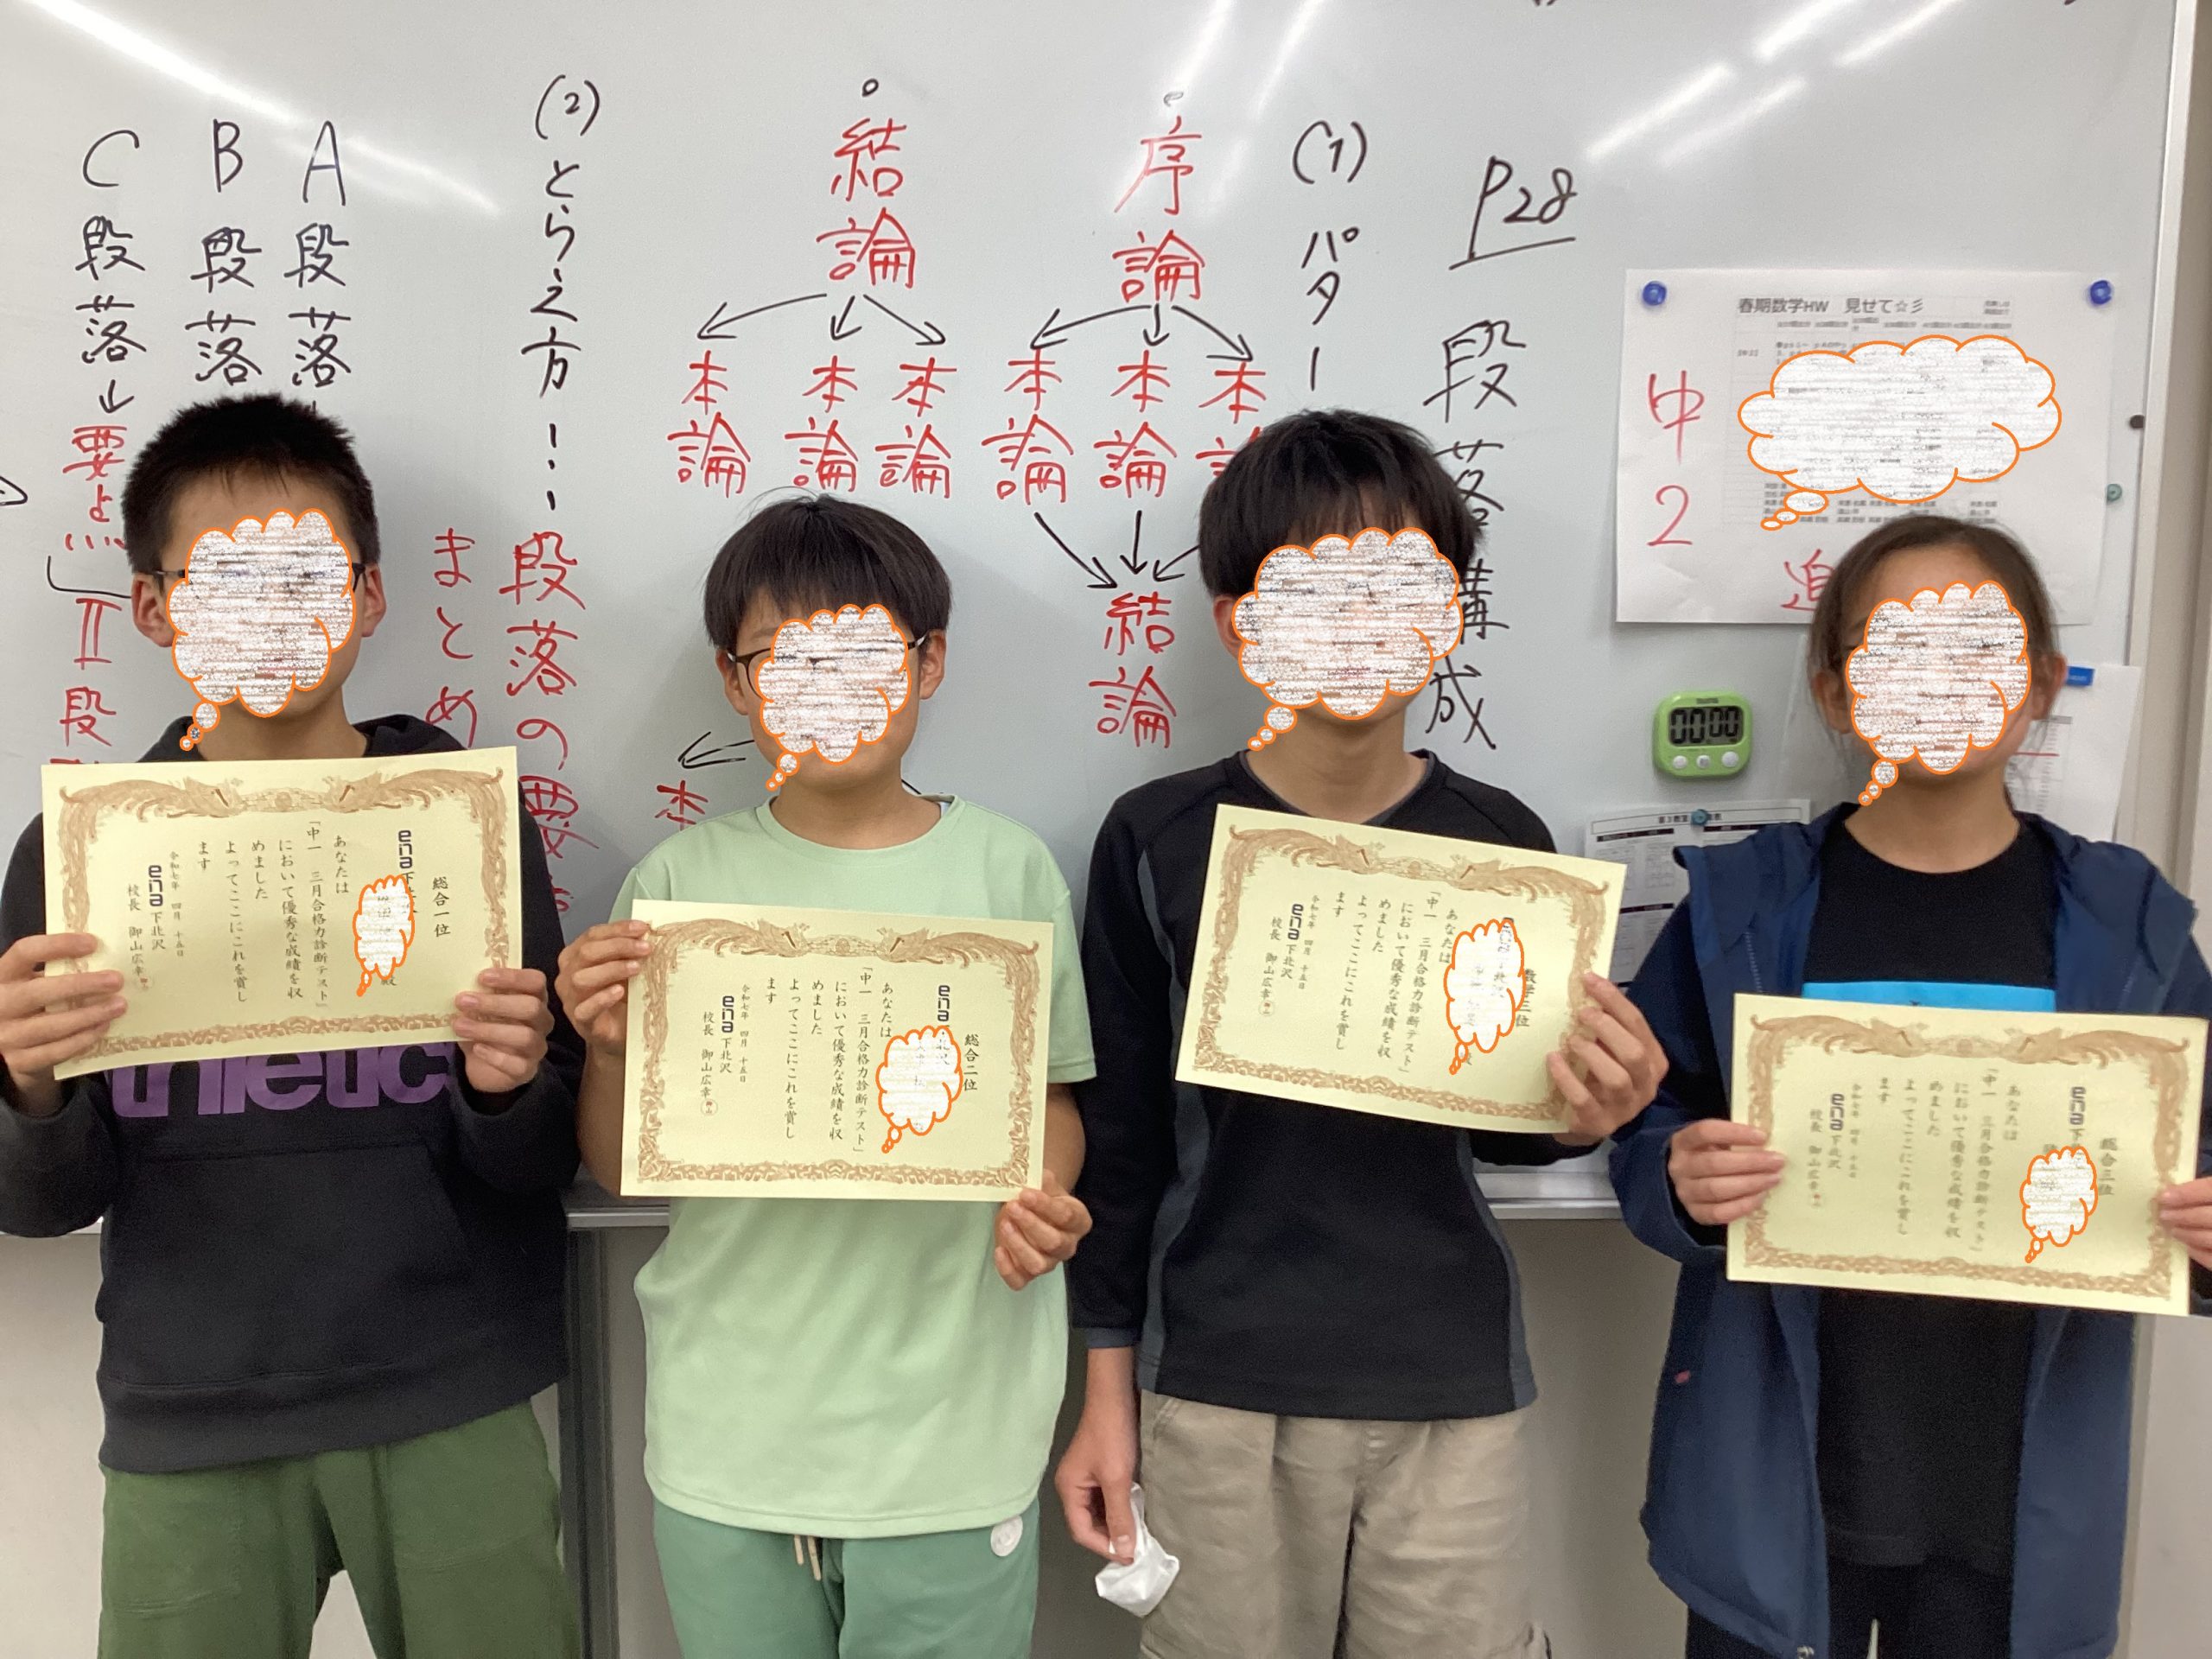 P28
段落構成
(1) パター
序論
本論
本論
本
結論
結論
本論
本論
本論
本
(2) とらえ方
段落の要
まとめ
A段落
B段落
C段落→要点
Ⅱ段
春期数学HW 見せて☆彡
中2
追
00:00
総合一位
ena下北
殿
あなたは
「中一 三月合格力診断テスト」
において優秀な成績を収
めました
よってここにこれを賞し
ます
令和七年 四月 十五日
ena下北沢
校長 御山広幸
総合二位
ena
あなたは
「中一 三月合格力診断テスト」
において優秀な成績を収
めました
よってここにこれを賞し
ます
令和七年 四月 十五日
ena下北沢
校長 御山広幸
数学二位
あなたは
「中一 三月合格力診断テスト」
において優秀な成績を収
めました
よってここにこれを賞し
ます
令和七年 四月 十五日
ena下北沢
校長 御山広幸
総合三位
ena下
あなたは
「中一 三月合格力診断テスト」
において優秀な成績を収
めました
よってここにこれを賞し
ます
令和七年 四月 十五日
ena下北沢
校長 御山広幸
thletics